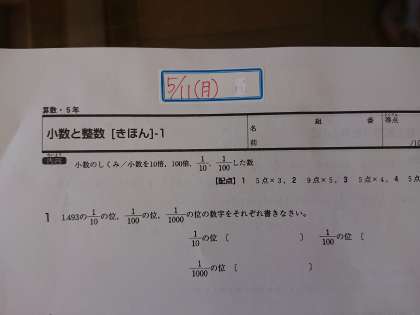 5/11(月)
算数・5年
小数と整数 [きほん]-1
組 番
名前
得点
小数のしくみ/小数を10倍、100倍、1/10、1/100した数
【配点】 1 5点×3、2 9点×5、3 5点×4、4 5点
1 1.493の1/10の位、1/100の位、1/1000の位の数字をそれぞれ書きなさい。
1/10の位 〔 〕 1/100の位 〔
1/1000の位 〔 〕